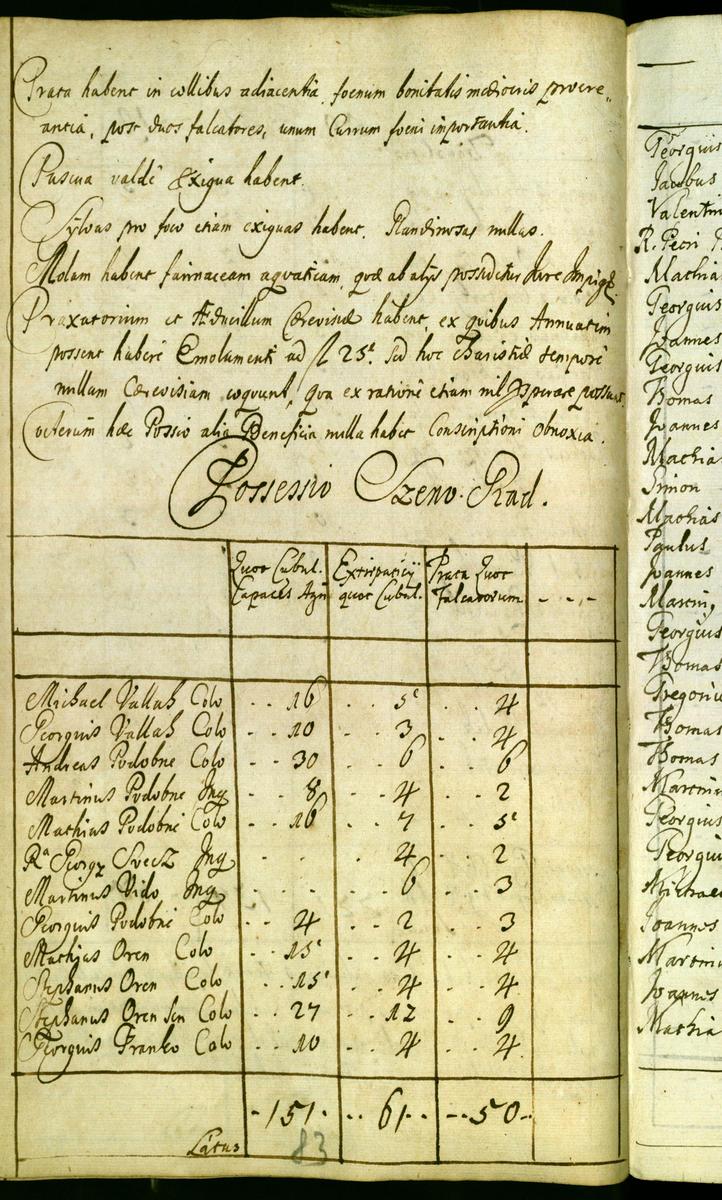 Prata habent in collibus adiacentia, foenum bonitatis mediocris procre„
antia, post duos falcatores, unum Currum foeni importantia.
Pascua valde Exigua habent.
Sylvas pro foco etiam exiguas habent. Glandinosas nullas.
Molam habent farinaceam aquaticam, quae ab alys possidetur Jure Impigt.
Praxatorium et Educillum Cerevisiae habent, ex quibus Annuatim
possent habere Emolumenti ad f 25. Sed hoc Caristiae tempore
nullam Cerevisiam coquunt, qua ex ratione etiam nil sperare possunt.
Coeterum haec Possio alia Beneficia nulla habet Conscriptioni obnoxia.
Possessio Szent Rad.
Quot Cubul. Extirpaticy Prata Quot
Capaces Agri quot Cubul. Falcatorum - - . -
Michael Vallah Colo . . 16 . . 5 . . 4
Georguis Vallah Colo . . 10 . . 3 . . 4
Andreas Podobne Colo . . 30 . . 6 . . 6
Martinus Podobne Inq . . 8 . . 4 . . 2
Mathias Podobne Colo . . 16 . . 7 . . 5
Ra Georg Svecz Inq . . . . 4 . . 2
Martinus Vido Inq . . . . 6 . . 3
Georguis Podobne Colo . . 4 . . 2 . . 3
Mathias Oren Colo . . 15 . . 4 . . 4
Stephanus Oren Colo . . 15 . . 4 . . 4
Stephanus Oren Sen Colo . . 27 . . 12 . . 9
Georguis Franko Colo . . 10 . . 4 . . 4
-151. . . 61 . . --50-
Latus
83
Georguis
Jacobus
Valentin
R. Petri
Mathia
Georguis
Joannes
Georguis
Thomas
Joannes
Mathia
Simon
Mathias
Paulus
Joannes
Martin
Georguis
Thomas
Gregoriu
Thomas
Thomas
Martin
Georguis
Georgui
Michael
Joannes
Martin
Joannes
Mathia